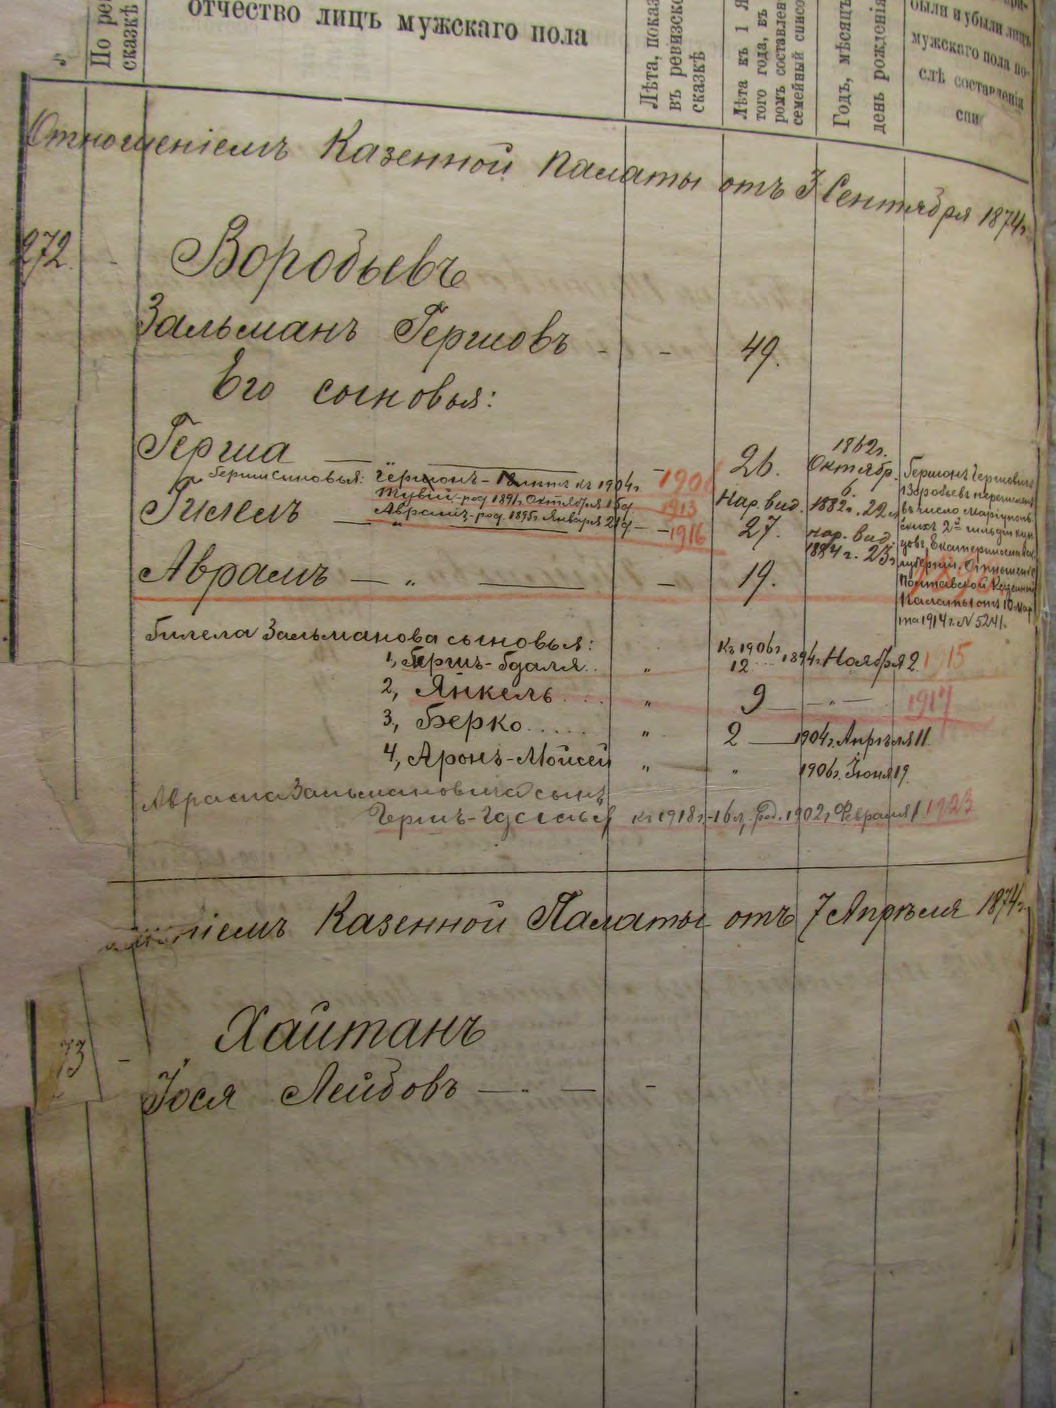 По ре
сказкѣ
отчество лицъ мужскаго пола
Лѣта, показ
въ ревизско
сказкѣ
Лѣта къ 1 Я
того года, въ
ромъ составлен
семейный списо
Годъ, мѣсяцъ
день рожденія
были и убыли лицъ
мужскаго пола по-
слѣ составленія
спи
Отношеніемъ Казенной Палаты отъ 3 Сентября 1874 г.
272. Воробьевъ
Зальманъ Гершовъ - - 49.
Его сыновья:
Герша — 26. 1862 г.
Октябр.
6.
Герши сыновья: Гершонъ - лѣтъ къ 1904 г.
Тувій - род 1891 г. Октября 1901
Аврамъ - род. 1895 г. Января 21 д
1913
1916
Гилель — 27.
Нар. вид. 1882 г. 22 л
Аврамъ — „ — — 19.
нар. вид.
1884 г. 23 л
Гершонъ Гершовичъ
Воробьевъ перечисленъ
въ число Маріуполь
скихъ 2й гильдіи куп
цовъ, Екатеринославск
губерніи. Отношеніе
Полтавской Казенной
Палаты отъ 10 Мар
та 1914 г. № 5241.
Гилела Зальманова сыновья:
1, Гершъ-Гдалья.. „ Къ 1906 г. 12 1894 г. Ноября 2 1915
2, Янкель.... „ 9 — „ — 1917
3, Берко..... „ 2 — 1904 г. Апрѣля 11.
4, Аронъ-Мойсей „ „ 1906 г. Іюня 19.
Аврама Зальмановича сынъ
Гершъ-Гдалья къ 1918 г. - 16 л, род. 1902 г. Февраля 1 1923
ніемъ Казенной Палаты отъ 7 Апрѣля 1874 г.
73 - Хайтанъ
Іося Лейбовъ — - — -